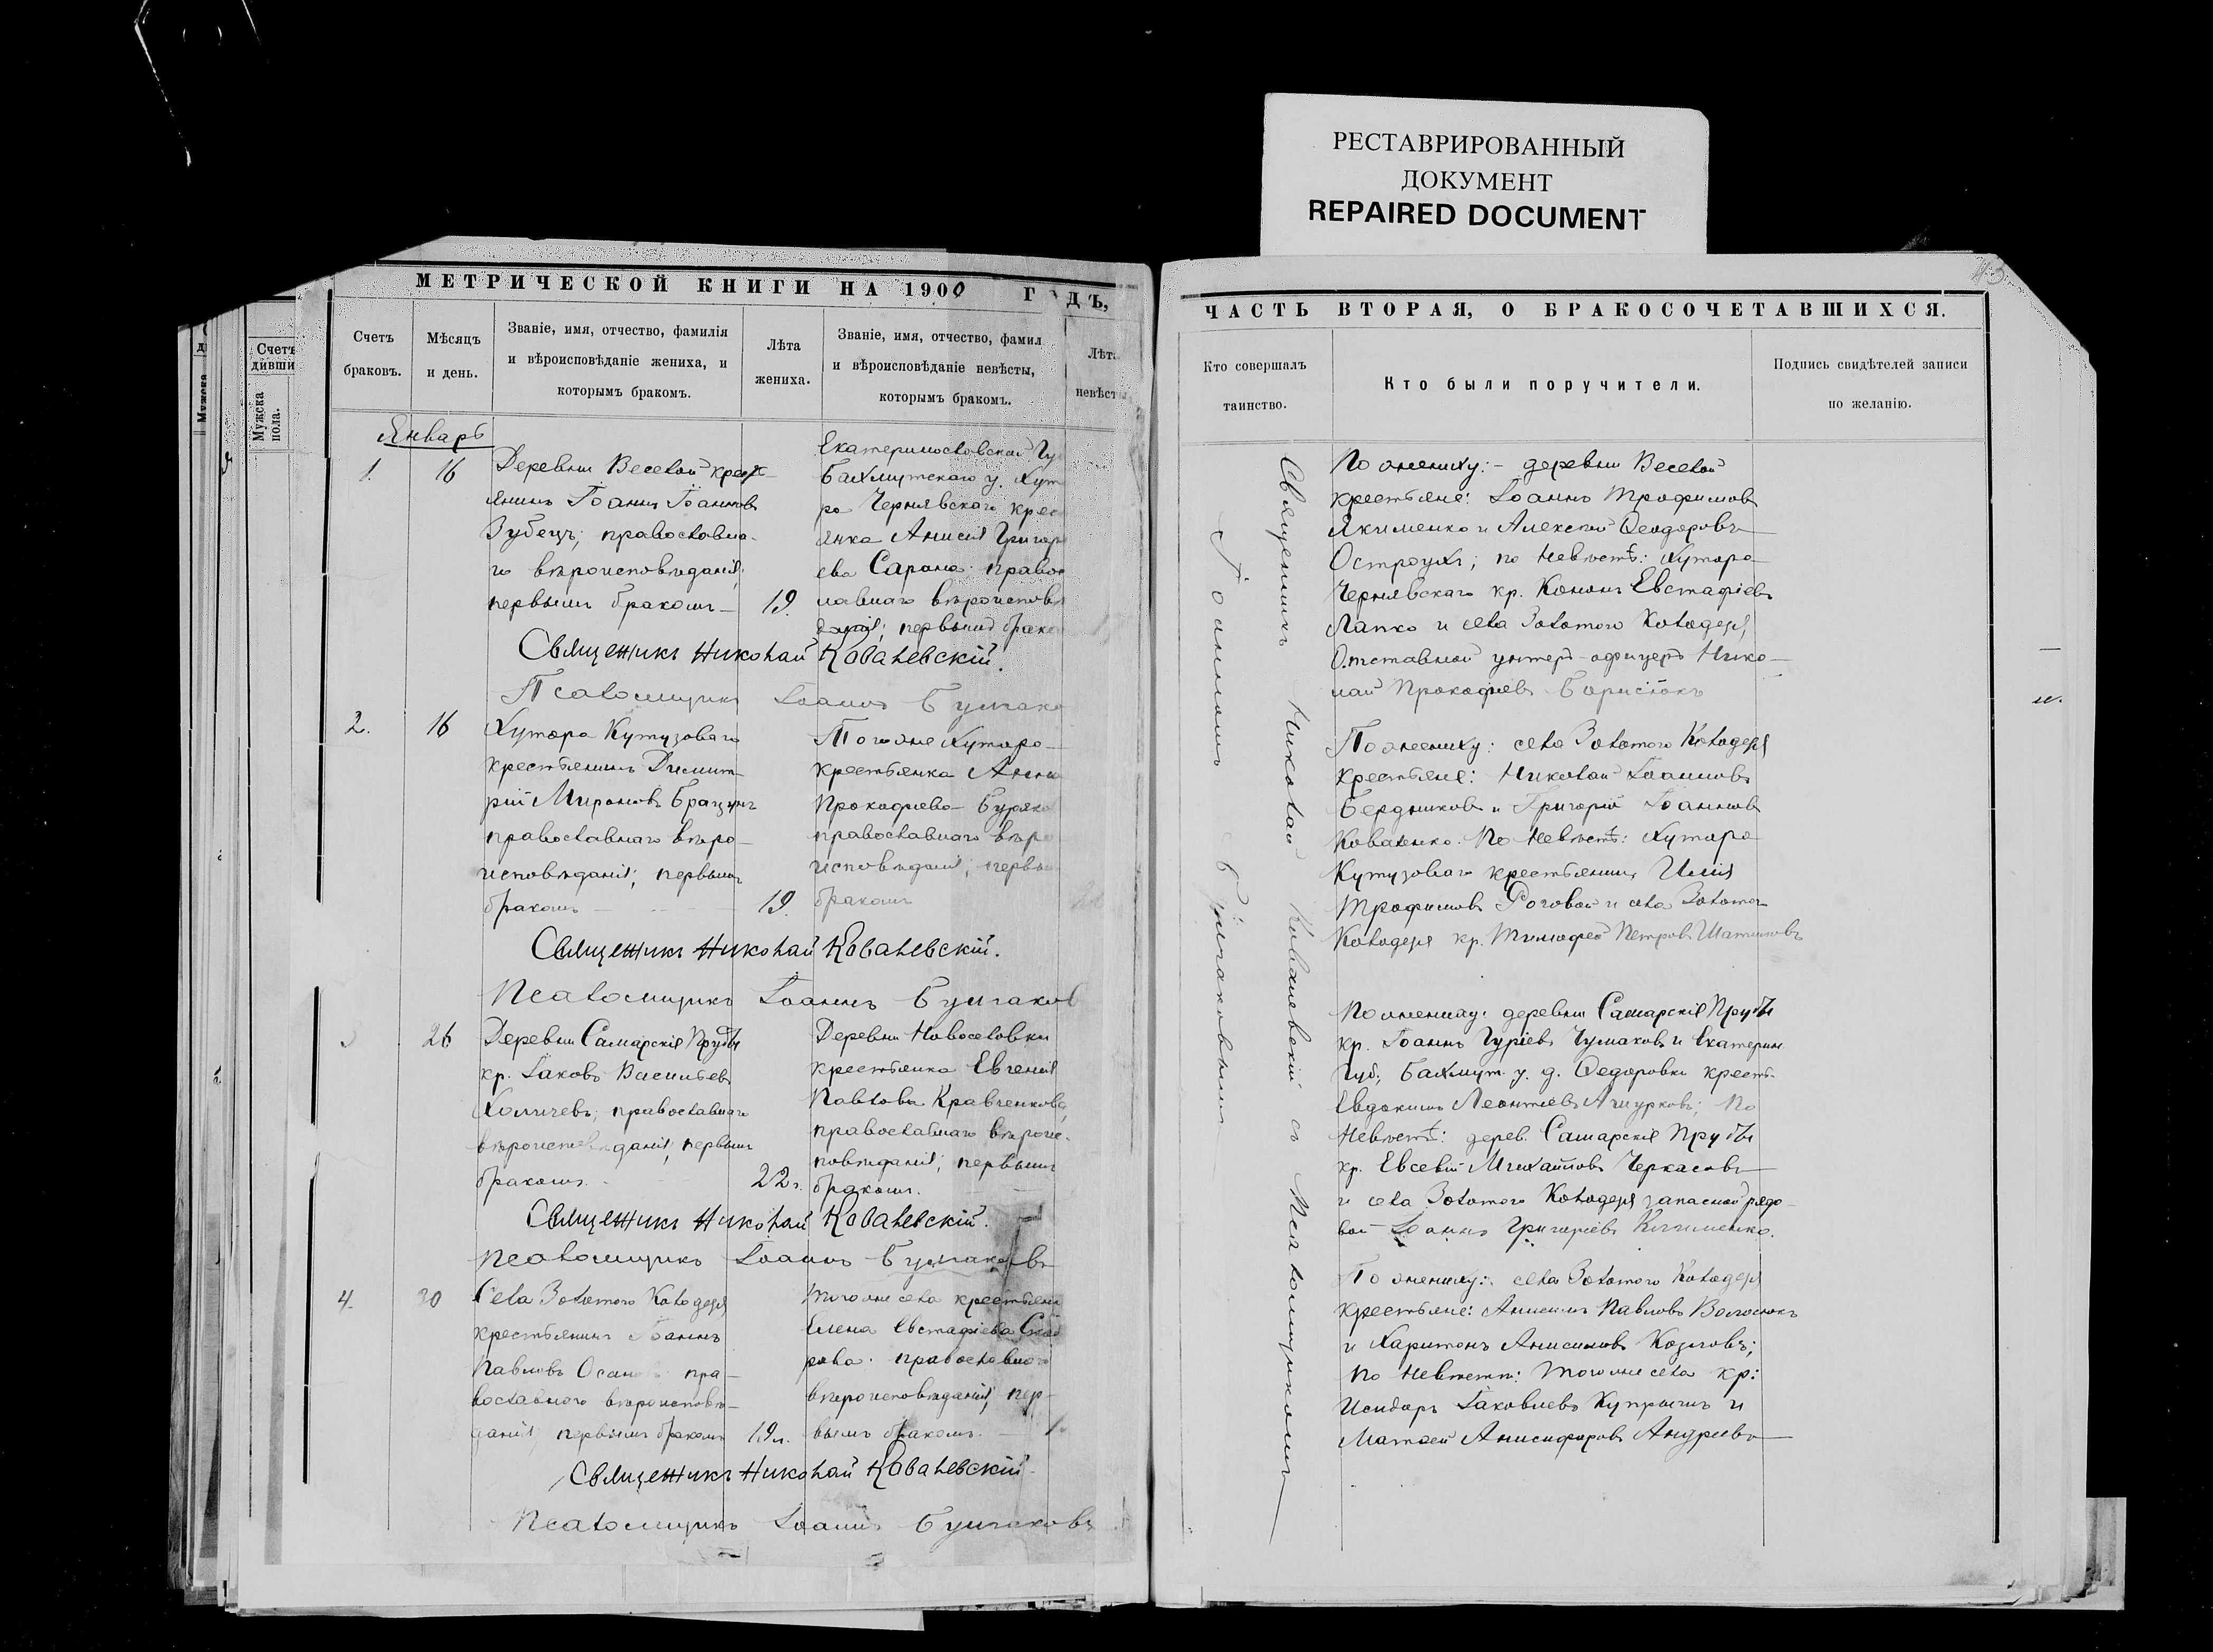 РЕСТАВРИРОВАННЫЙ
ДОКУМЕНТ
REPAIRED DOCUMENT
МЕТРИЧЕСКОЙ КНИГИ НА 1900 ГОДЪ,
Счетъ
браковъ.
Мѣсяцъ
и день.
Званіе, имя, отчество, фамилія
и вѣроисповѣданіе жениха, и
которымъ бракомъ.
Лѣта
жениха.
Званіе, имя, отчество, фамил
и вѣроисповѣданіе невѣсты,
которымъ бракомъ.
Лѣта
невѣсты
Январь
1.
16
Деревни Веселой крест-
янинъ Іоаннъ Іоанновъ
Зубецъ; православна-
го вѣроисповѣданія,
первымъ бракомъ —
19.
Екатеринославской Гу
Бахмутскаго у. Хут
ра Чернявскаго крес
янка Анисія Григор
ева правос
лавнаго вѣроисповѣ
данія; первымъ брако
Священникъ Николай Ковалевскій.
Псаломщикъ Іоаннъ Булгако
2.
16
Хутора Кутузоваго
крестьянинъ Димит-
рій Мироновъ
православнаго вѣро-
исповѣданія; первымъ
бракомъ —
19.
Того же Хутора
крестьянка Анна
Прокофіева
православнаго вѣро
исповѣданія; первы
бракомъ
Священникъ Николай Ковалевскій.
Псаломщикъ Іоаннъ Булгаков
26
Деревни Самарскія Пруды
кр. Іаковъ Васильевъ
православнаго
вѣроисповѣданія; первымъ
бракомъ.
22 г.
Деревни Новоселовки
крестьянка Евгенія
Павлова Кравченкова,
православнаго вѣроис-
повѣданія; первымъ
бракомъ.
Священникъ Николай Ковалевскій.
Псаломщикъ Іоаннъ Булгаковъ
4.
30
Села Золотого Колодезя
крестьянинъ Іоаннъ
Павловъ пра-
вославного вѣроисповѣ-
данія; первымъ бракомъ
19 л.
Того же села крестьянка
Елена Евстафіева
православного
вѣроисповѣданія; пер-
вымъ бракомъ.
Священникъ Николай Ковалевскій.
Псаломщикъ Іоаннъ Булгаковъ
ЧАСТЬ ВТОРАЯ, О БРАКОСОЧЕТАВШИХСЯ.
Кто совершалъ
таинство.
Кто были поручители.
Подпись свидѣтелей записи
по желанію.
Священникъ Николай Ковалевскій съ Псаломщикомъ
Іоанномъ Булгаковымъ
По жениху: — деревни Веселой
крестьяне: Іоаннъ Трофимовъ
Якименко и Алексѣй Ѳеодоровъ
Остроухъ; по невѣстѣ: Хутора
Чернявскаго кр. Кононъ Евстафіевъ
Лапко и села Золотого Колодезя,
Отставной унтеръ-офицеръ Нико-
лай Прокофіевъ
По жениху: села Золотого Колодезя
крестьяне: Николай Іоанновъ
Бердниковъ и Григорій Іоанновъ
Коваленко. По невѣстѣ: Хутора
Кутузоваго крестьянинъ Илія
Трофимовъ Роговой и села Золотого
Колодезя кр. Тимофей Петровъ
По жениху: деревни Самарскія Пруды
кр. Іоаннъ Гуріевъ Чумаковъ и Екатерин.
Губ., Бахмут. у. д. Ѳедоровки крест.
Евдокимъ Леонтіевъ По
невѣстѣ: дерев. Самарскія Пруды
кр. Евсевій Михайловъ Черкасовъ
и села Золотого Колодезя запасной рядо-
вой Іоаннъ Григоріевъ
По жениху: села Золотого Колодезя
крестьяне: Павловъ
и Харитонъ Анисимовъ Козловъ;
По невѣстѣ: того же села кр:
Исидоръ Іаковлевъ и
Матвей Анисифоровъ Андреевъ